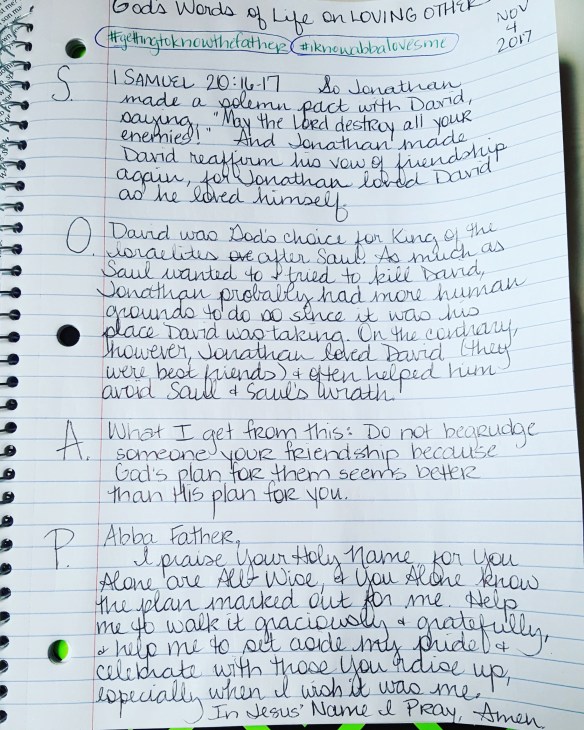 God's Words of Life on LOVING OTHER
NOV
4
2017
#gettingtoknowthefather #iknowabbalovesme
S. 1 SAMUEL 20:16-17 So Jonathan
made a solemn pact with David,
saying, "May the Lord destroy all your
enemies!" And Jonathan made
David reaffirm his vow of friendship
again, for Jonathan loved David
as he loved himself.
O. David was God's choice for King of the
Israelites after Saul. As much as
Saul wanted to & tried to kill David,
Jonathan probably had more human
grounds to do so since it was his
place David was taking. On the contrary,
however, Jonathan loved David (they
were best friends) & often helped him
avoid Saul & Saul's wrath.
A. What I get from this: Do not begrudge
someone your friendship because
God's plan for them seems better
than His plan for you.
P. Abba Father,
I praise Your Holy Name for You
Alone are All Wise, & You Alone know
the plan marked out for me. Help
me to walk it graciously & gratefully,
& help me to set aside my pride &
celebrate with those You raise up,
especially when I wish it was me.
In Jesus' Name I Pray, Amen.